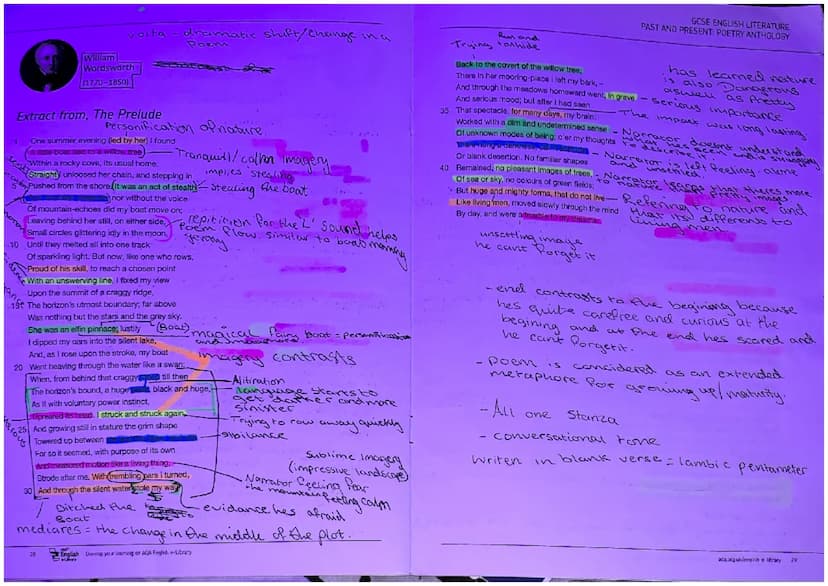 volta - dramatic shift/change in a
Poem
William
Wordsworth
(1770–1850)
Extract from, The Prelude
Personification of nature
One summer evening (led by her) I found
Tranquil/calm Imagery
Within a rocky cove, its usual home.
implies stealing
Straight I unloosed her chain, and stepping in
5 Pushed from the shore. It was an act of stealth - Stealing the boat
nor without the voice
Of mountain-echoes did my boat move on;
Leaving behind her still, on either side,
Small circles glittering idly in the moon,
repitition for the 'L' sound helps
Poem flow similar to boat
10 Until they melted all into one track
Of sparkling light. But now, like one who rows,
Proud of his skill, to reach a chosen point
With an unswerving line, I fixed my view
Upon the summit of a craggy ridge,
15 The horizon's utmost boundary; far above
Was nothing but the stars and the grey sky.
She was an elfin pinnace; lustily (Boat)
magical fairy boat =
I dipped my oars into the silent lake,
And, as I rose upon the stroke, my boat
imagery contrasts
20 Went heaving through the water like a swan;
When, from behind that craggy till then
Alitration
The horizon's bound, a huge black and huge,
Language starts to
get darker and more
sinister
As if with voluntary power instinct,
Upreared its head. I struck and struck again,
Trying to row away quickly
25 And growing still in stature the grim shape
Towered up between
sibilance
For so it seemed, with purpose of its own
Sublime Imagery
(impressive landscape)
And measured motion like a living thing,
Narrator feeling fear
the mountain
feeling calm
Strode after me. With trembling oars I turned,
30 And through the silent water stole my way
Ditched the
Boat
evidence hes afraid
mediares = the change in the middle of the plot.
28
English
e-Library
GCSE ENGLISH LITERATURE
PAST AND PRESENT: POETRY ANTHOLOGY
Run and
Trying to hide
Back to the covert of the willow tree;
There in her mooring-place I left my bark, -
And through the meadows homeward went, in grave
has learned nature
is also Dangerous
aswell as Pretty
- serious importance
And serious mood; but after I had seen
35 That spectacle, for many days, my brain
The impact was long lasting
Worked with a dim and undetermined sense
Of unknown modes of being; o'er my thoughts
Narrator doesnt understand
Narrator is left feeling alone
and unsettled.
Or blank desertion. No familiar shapes
40 Remained, no pleasant images of trees,
Of sea or sky, no colours of green fields;
But huge and mighty forms, that do not live
Refering to nature and
that its different to
living men
Like living men, moved slowly through the mind
By day, and were a trouble to my dreams.
unsettling image
he cant forget it
- end contrasts to the begining because
hes quite carefree and curious at the
begining and at the end hes scared and
he cant forget it.
- poem is considered as an extended
metaphore for growing up/maturity.
- All one Stanza
- conversational tone
writen in blank verse = Iambic pentameter
29